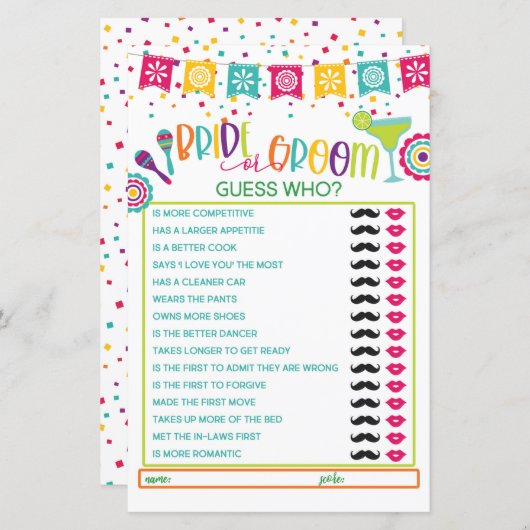 BRIDE or GROOM
GUESS WHO?
IS MORE COMPETITIVE
HAS A LARGER APPETITIE
IS A BETTER COOK
SAYS 'I LOVE YOU' THE MOST
HAS A CLEANER CAR
WEARS THE PANTS
OWNS MORE SHOES
IS THE BETTER DANCER
TAKES LONGER TO GET READY
IS THE FIRST TO ADMIT THEY ARE WRONG
IS THE FIRST TO FORGIVE
MADE THE FIRST MOVE
TAKES UP MORE OF THE BED
MET THE IN-LAWS FIRST
IS MORE ROMANTIC
name: score: